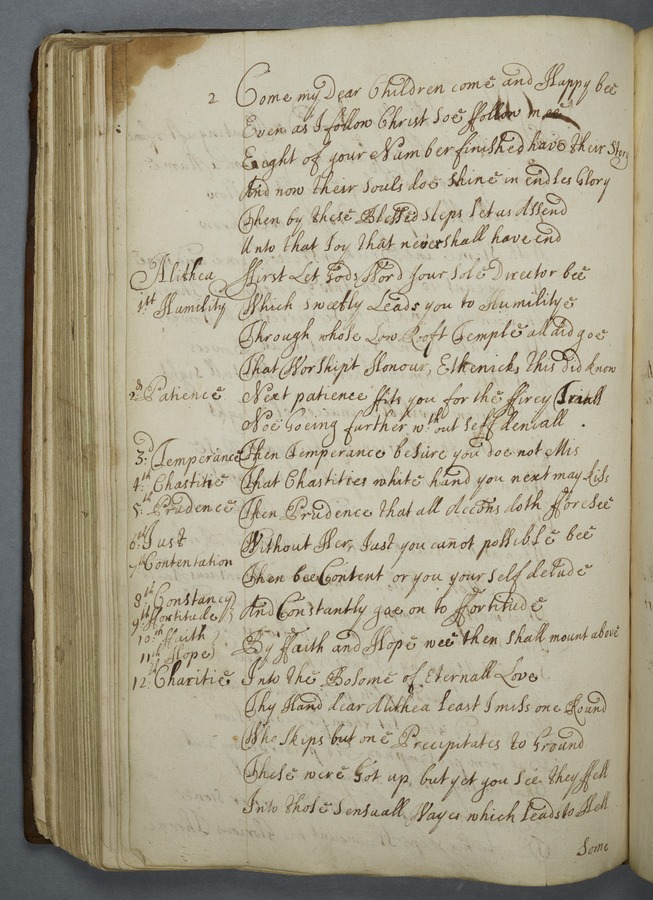 2 Come my Dear Children come and Happy bee
Even as I follow Christ soe ffollow mee
Eaght of your Number finished have their Story
And now their Souls doe Shine in endles Glory
Then by these Blessed steps let us Assend
Unto that Joy that never shall have end
Alithea ffirst Let Gods Word your Sole Director bee
1st Humility Which sweetly Leads you to Humilitye
Through whose Low Rooft Temple all did goe
That Worshipt Honour, Ethenicks this did know
2d Patience Next patience ffits you for the ffirey Triall
Noe Goeing further wth out self deniall .
3d: Temperance Then Temperance besure you doe not Mis
4th Chastitie That Chastities white hand you next may kiss
5th: Prudence Then Prudence that all doth fforesee
6th: Just Without Her, Just you cannot possible bee
7th Contentation Then bee Content or you your self delude
8th Constancy And Constantly goe on to ffortitude
9th ffortitude
10th ffaith By ffaith and Hope wee then shall mount above
11th Hope
12: Charitie Into the Bosome of Eternall Love
Thy Hand dear Alithea least I miss one Round
Who skips but one Precipitates to Ground
These were Got up, but yet you see they ffell
Into those sensuall Wayes which Leads to Hell
Some